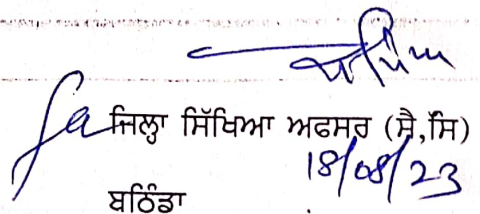 ਜਿਲ੍ਹਾ ਸਿੱਖਿਆ ਅਫਸਰ (ਸੈ,ਸਿ)
18/08/23
ਬਠਿੰਡਾ